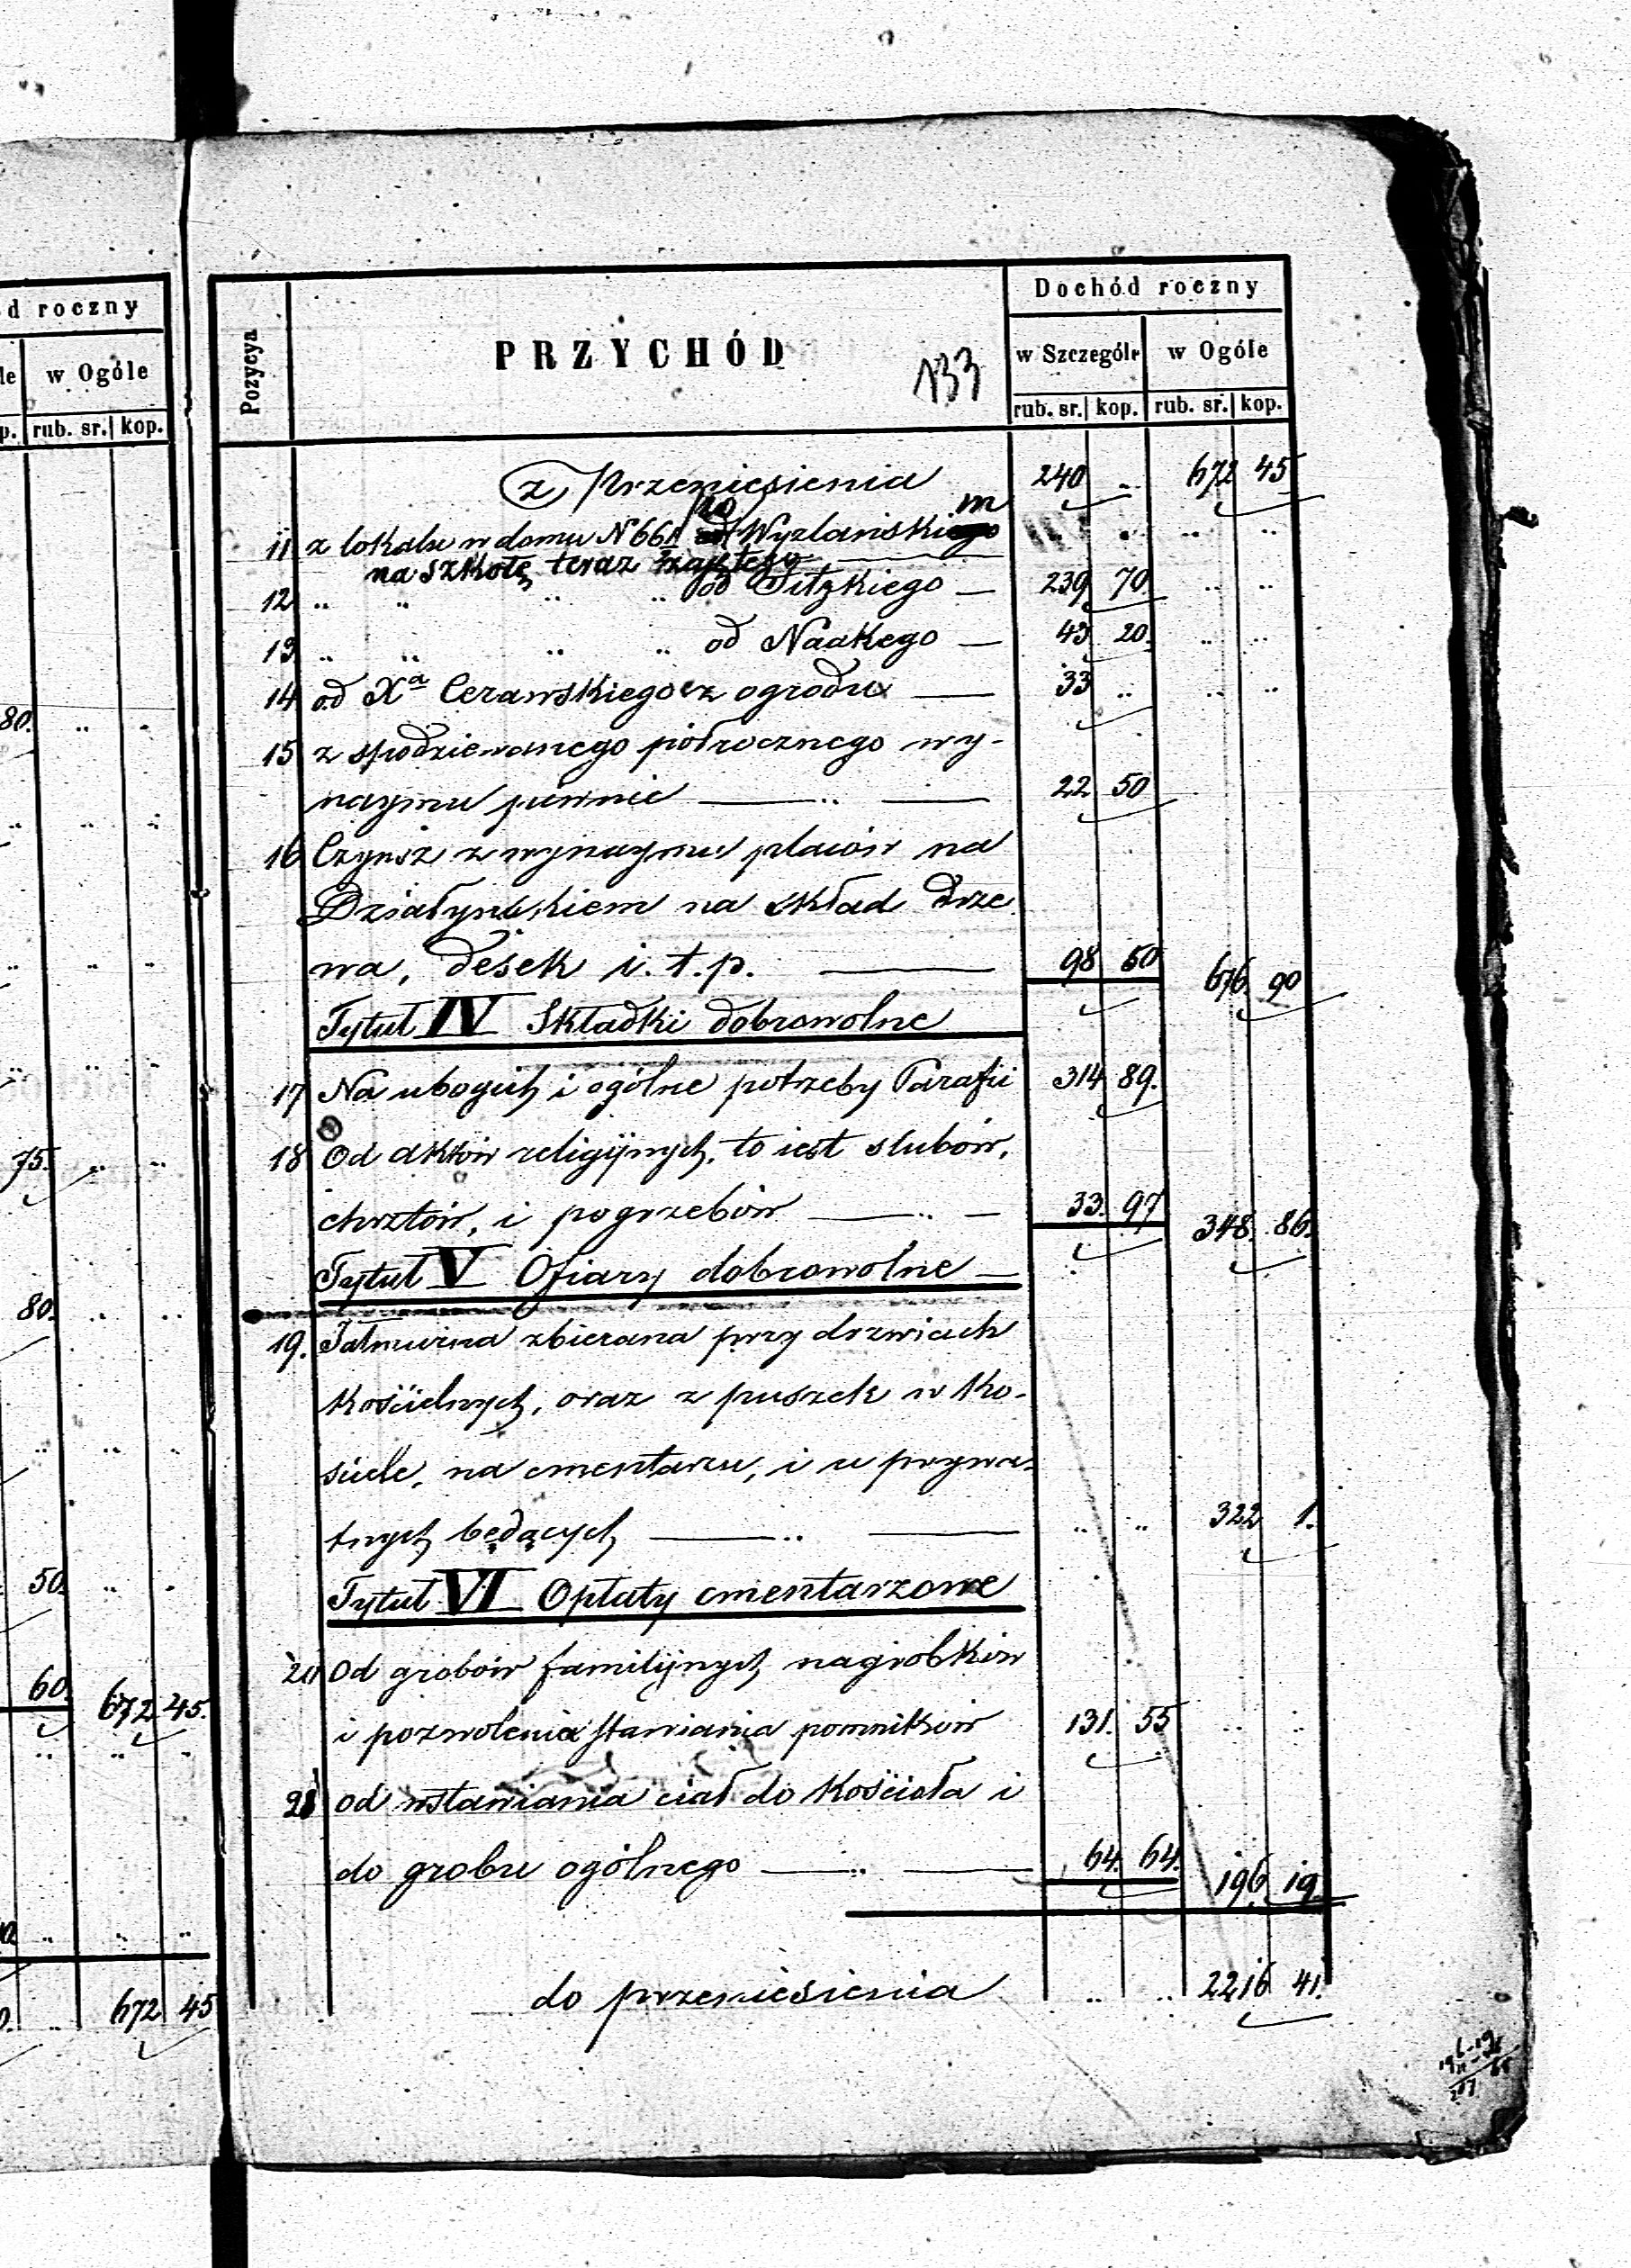 d roczny
le w Ogóle
p. rub. sr. kop.
80.
75.
80.
50.
60. 672 45.
672 45
Dochód roczny
Pozycya PRZYCHÓD 133 w Szczególe w Ogóle
rub. sr. kop. rub. sr. kop.
z Przeniesienia 240 .. 672 45
po m
11 z lokalu w domu N 661 od Wyzlańskiego
na szkołę teraz zajętego
12 .. .. .. .. od Titzkiego — 239 70
13 .. .. .. .. od Naakego — 43 20.
14 od Xa Cerawskiego z ogrodu — 33 ..
15 z spodziewanego półrocznego wy-
naymu piwnic — .. — 22 50
16 Czynsz z wynaymu placów na
Działyńskiem na skład drze
wa, desek i. t. p. — 98 50 676 90
Tytuł IV Składki dobrowolne
17 Na ubogich i ogólne potrzeby Parafii 314 89.
18 Od aktów religijnych, to iest slubów,
chrztów, i pogrzebów — .. — 33. 97 348. 86.
Tytuł V Ofiary dobrowolne —
19. Jałmużna zbierana przy drzwiach
Kościelnych, oraz z puszek w Ko-
sciele, na cmentarzu, i u prywa-
tnych będących — .. — .. .. 322 1.
Tytuł VI Opłaty cmentarzowe
20 Od grobów familijnych nagrobków
i pozwolenia stawiania pomników 131. 55 .. ..
21 od wstawiania ciał do Kościoła i
do grobu ogólnego — .. — 64. 64. 196 19
do przeniesienia .. .. 2216 41.